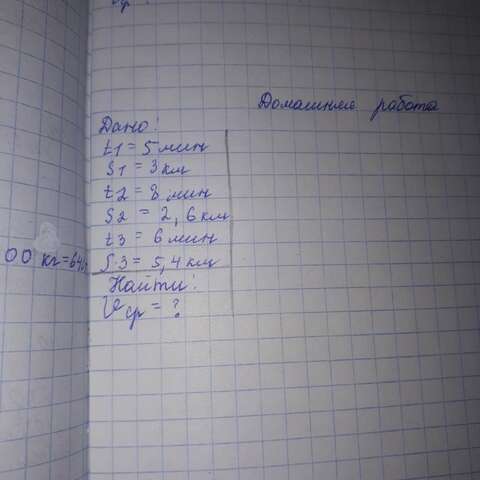 Домашняя работа
Дано:
t1 = 5 мин
S1 = 3 км
t2 = 8 мин
S2 = 2,6 км
t3 = 6 мин
S3 = 5,4 км
Найти:
Vср = ?
00 кг = 640